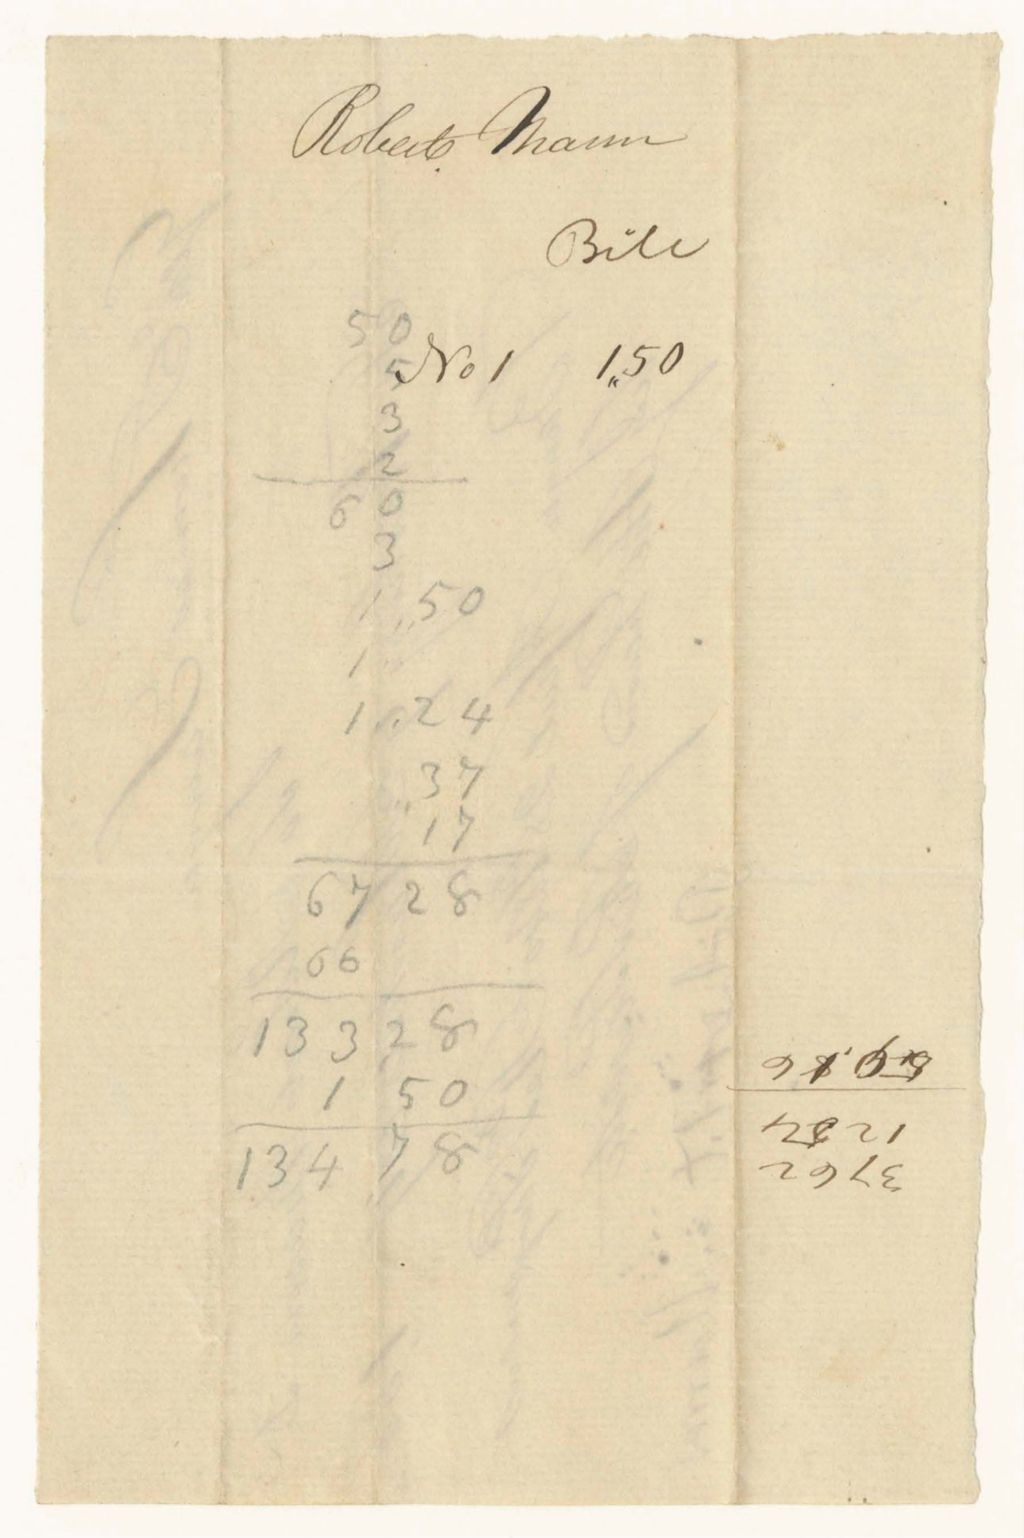 Robert Mann
Bill
50
5 No 1 1,,50
3
2
60
3
1,,50
1
1,,24
,,37
17
67 28
66
133 28
1 50
134 78
3762